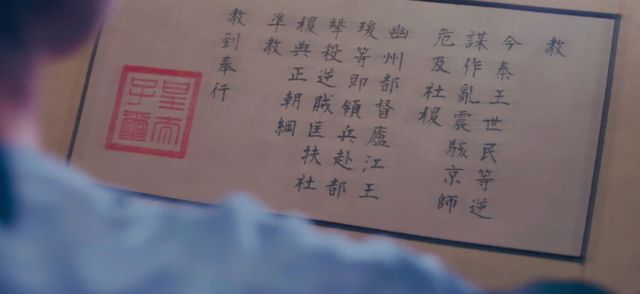 教
今秦王世民等逆
謀作亂震駭京師
危及社稷
幽州都督廬江王
瑗等即領兵赴都
擊殺逆賊匡扶社
稷典正朝綱
準教
教到奉行
皇太
子